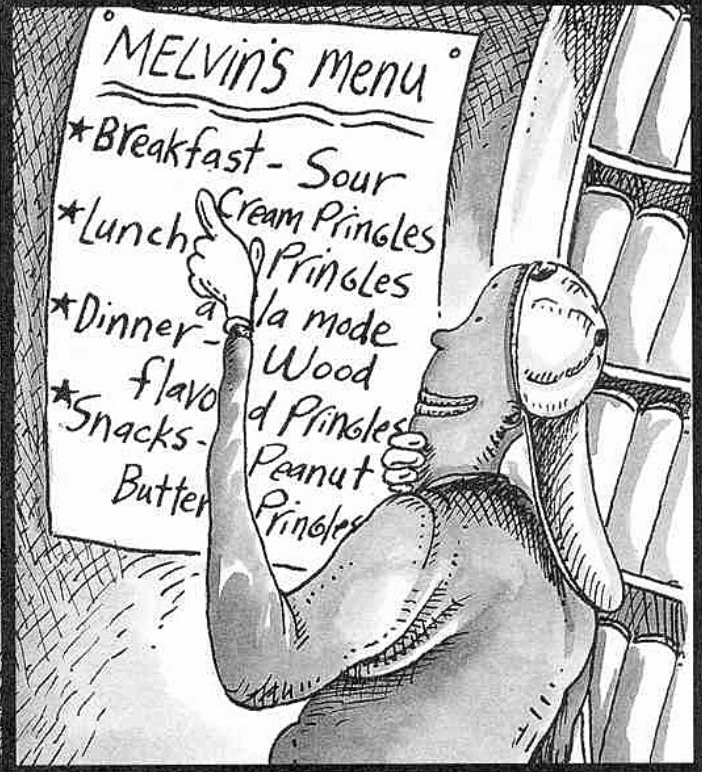 MELVin's menu
★Breakfast - Sour
Cream Pringles
★Lunch
Pringles
a la mode
★Dinner-
Wood
flavo d Pringles
★Snacks-
Peanut
Butter Pringles